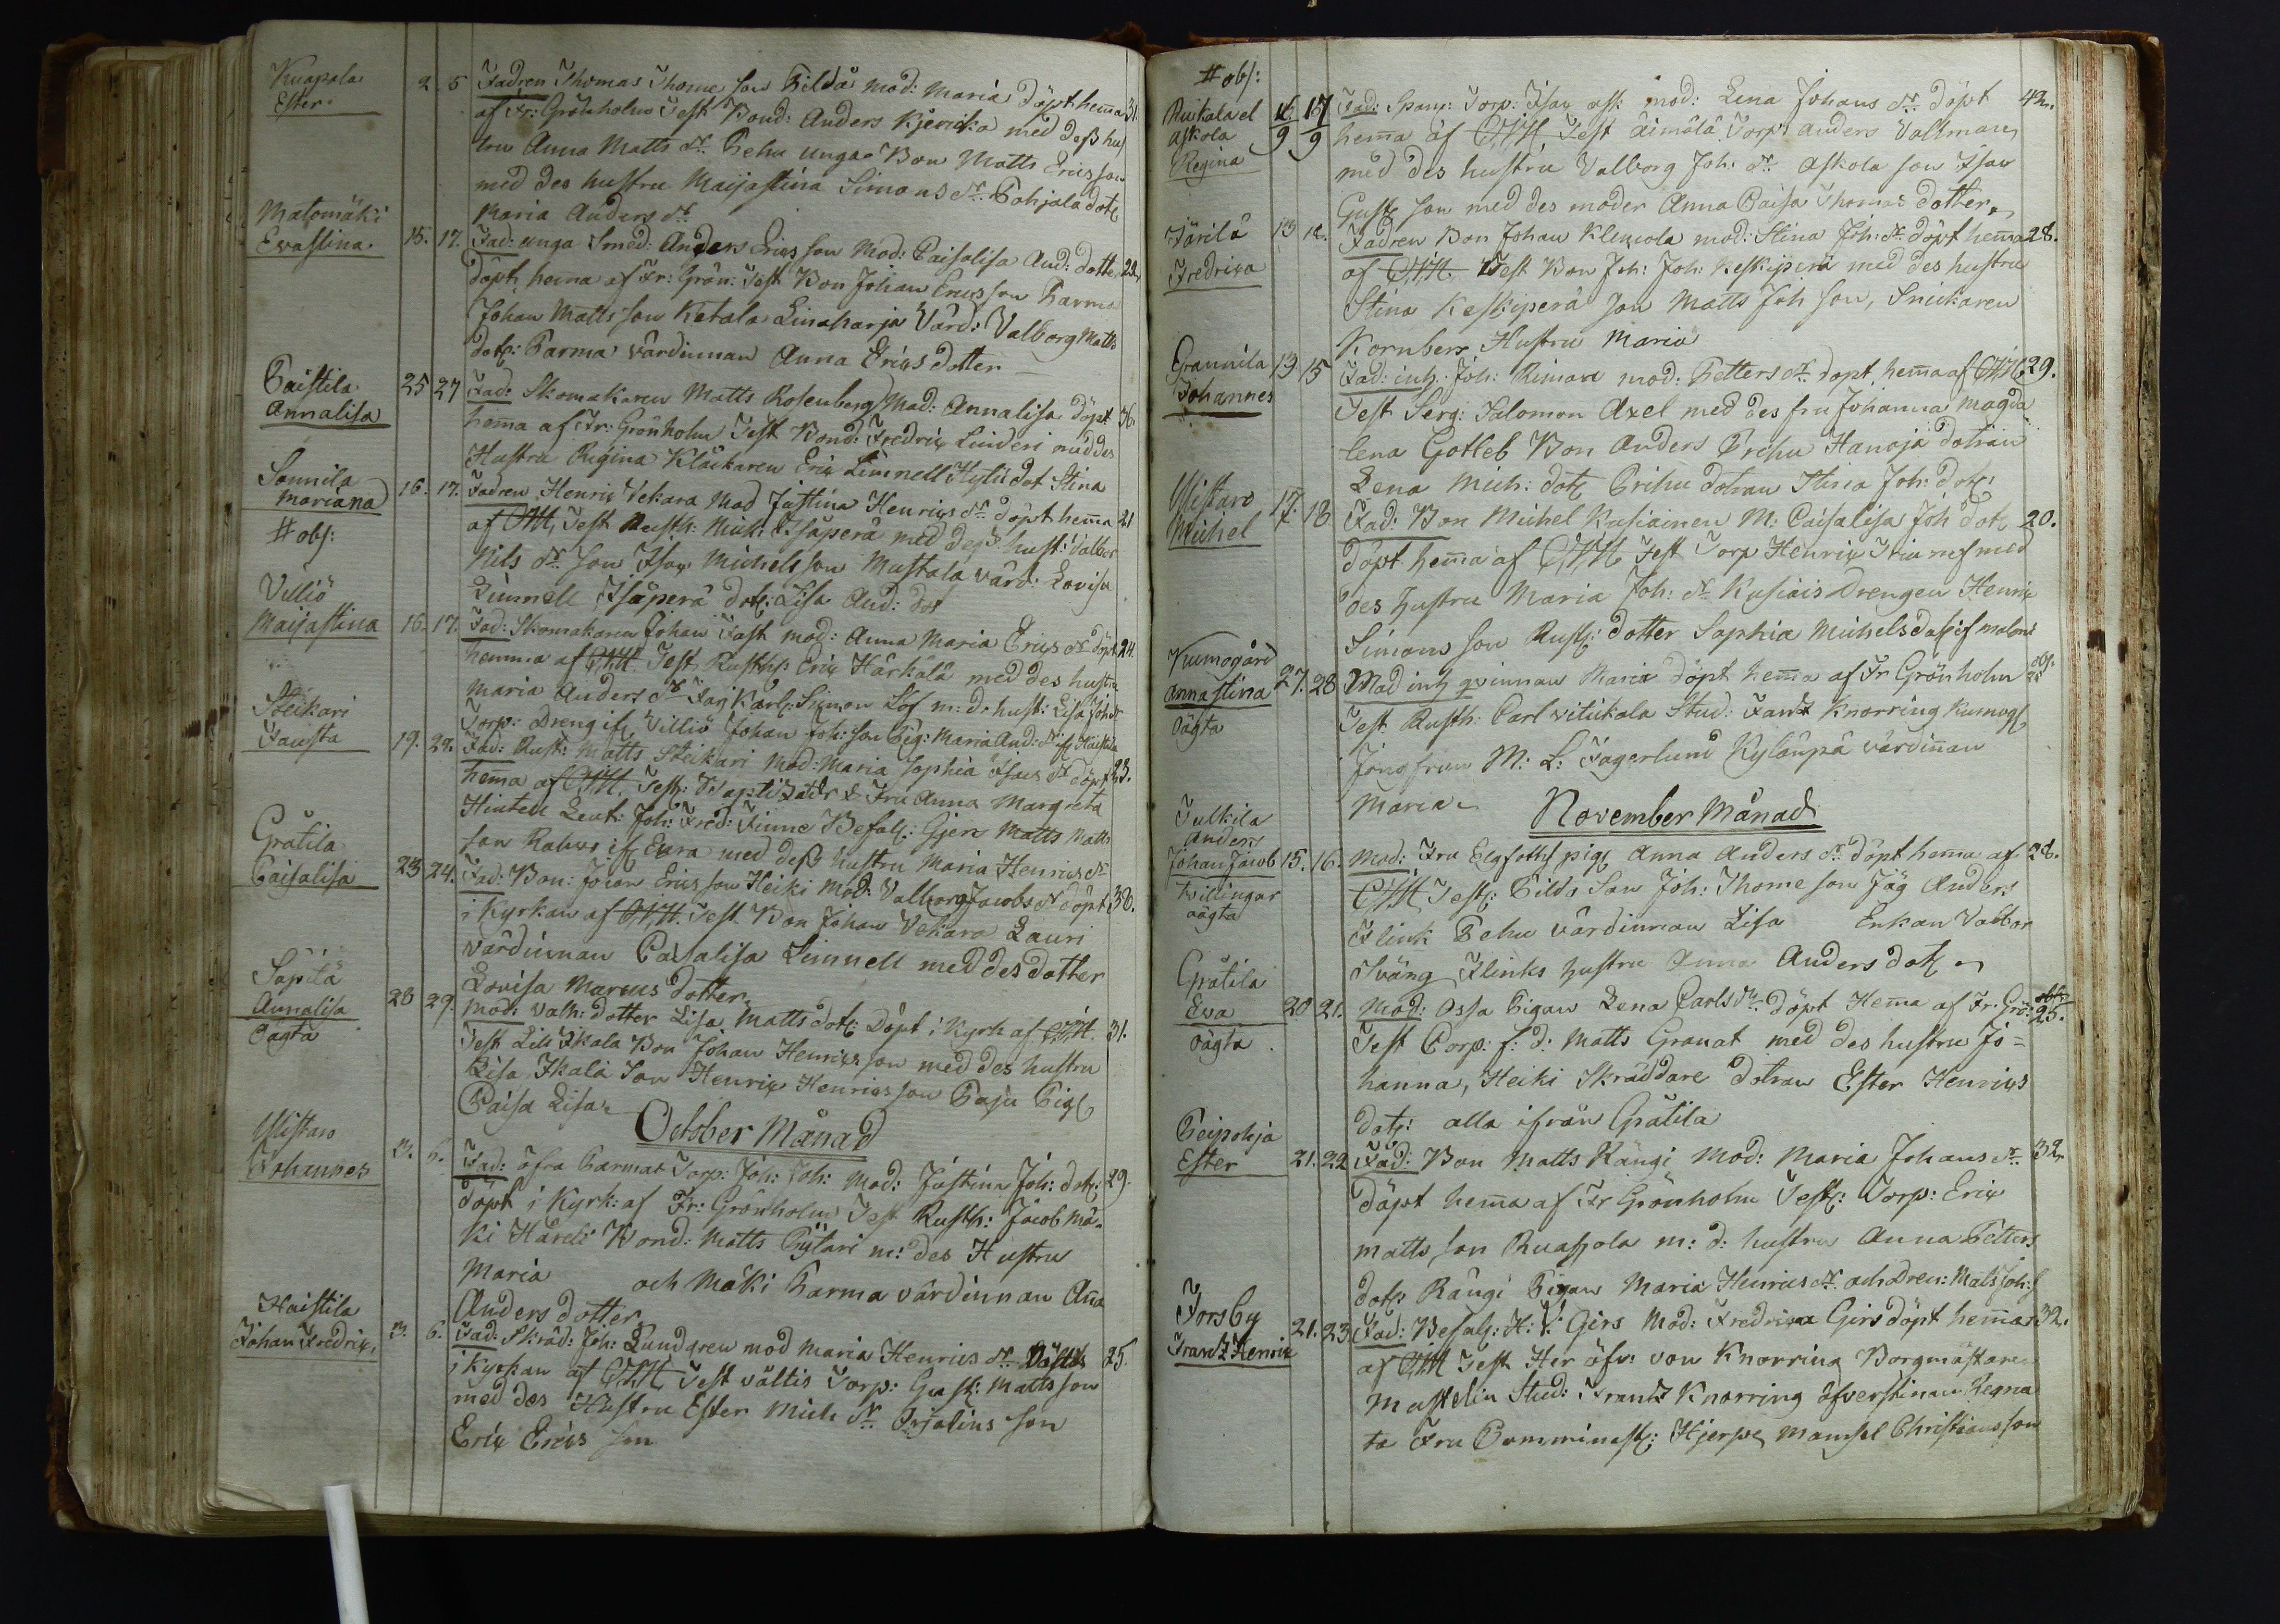 Knapala
Ester
2. 5 Fadren Thomas Thome son Pildå mod: Maria döpt hem̃a 31.
af Fr: Grönholm Test Bond: Anders Kjericka med dess hus
tru Anna Matts dr. Pehu unga Bon Matts Ericsson
med des hustru Maijastina Simons dr. Pohjala dotr
Maria Anders dr.
Matomäki
Ewastina 15. 17. Fad: unga Smed: Anders Erics son Mod: Caisalisa And: dotter 22
döpt hem̃a af Fr: Grön: Test Bon Johan Erics son Parma
Johan Matts son Ketala Linaharja Värd: Valborg Matts
dotr: Parma värdinnan Anna Erics dotter
Paistila
Annalisa 25 27 Fad: Skomakaren Matts Rosenberg Mod: Annalisa döpt 36.
hem̃a af Fr: Grönholm Test Bond: Fredric Linderi med des
Hustru Regina Klåckaren Eric Limnell Hytti dot Stina
Sonnila
Mariana 16. 17. Fadren Henric Vekara Mod Justina Henrics dr döpt hem̃a 21
# obs: af Test Rusth: Mich: Isäperä med dess hust: Valbor
Nils dr. Son Isac Michels son Mustala värd: Lovisa
Limnell Isäperä dotr: Lisa And: dot
Villiö
Maijastina 16. 17. Fad: Skomakaren Johan Fast mod: Anna Maria Erics dr döpt 24.
hemma af Test Rusth: Eric Härkälä med des hustru
Maria Anders dr Karl: Simon Löf m: d: hust: Lisa Joh dr
Torp: Dreng if Villiö Johan Joh: son Pig: Maria And: dr if Haistila
Steikari
Fausta 19. 22. Fad: Rust: Matts Steikari Mod: Maria Sophia Isacs dr döpt 23.
hem̃a af Test: Fru Anna Margreta
Hintell Leut: Joh: Fred: Finne Befal: Gjers Matts Matts
son if Eura med dess hustru Maria Henrics dr
Grätila
Caisalisa 23 24. Fad: Bon: Johan Erics son Heiki Mod: Valborg Jacobs dr döpt 30.
i Kyrkan af Test Bon Johan Vekara Lauri
värdinnan Caisalisa Limnell med des dotter
Lovisa Marcus dotter
Säpilä
Annalisa
Oägta 28 29. Mod: Valh: dotter Lisa Matts dotr: Döpt i Kyrk af 31.
Test Lill Ikala Bon Johan Henrics son med des hustru
Lisa, Ikala Son Henric Henrics son Paju Pigr
Caisa Lisa
October Månad
Ylistaro
Johannes 3. 6. Fad: öfra Parmas Torp: Joh: Joh: Mod: Justina Joh: dotr: 29.
döpt i Kyrk: af Fr: Grönholm Test Rusth: Jacob Mä-
ki Häveli Bond: Matts Pytäri m: des Hustru
Maria och Mäki Parma värdinnan Ana
Anders dotter
Haistila
Johan Fredric 3. 6. Fad: Skräd: Joh: Lundgren mod Maria Henrics dr. Döptes 25.
i Kyrkan af Test vältis Torp: Gust: Matts son
med des Hustru Ester Mich dr. son
Eric Erics son
# obs:
Ruskala el
Askola
Regina 16/9 17/9 Fad: Spanr: Torp: Isac mod: Lena Johans dr. döpt 42.
hem̃a af Test Äimälä Torp: Anders Vallman
med des hustru Valborg Joh: dr. Askola son Isac
Gust son med des moder Anna Caisa Thomas dotter
Järilä
Fredrica 13 14. Fadren Bon Johan Klemola mod: Stina Joh: dr döpt hem̃a 28.
af Test Bon Joh: Joh: Keskiperä med des hustru
Stina Keskiperä son Matts Joh son, Snickaren
Kornberr Hustru Maria
Grannila
Johannes 13 15 Fad: inh: Joh: Riman mod: Petters dr. döpt hem̃a af 29.
Test Serg: Salomon Axel med des fru Johanna Magda
lena Gotleb Bon Anders Prihu Hanoja dotran
Lena Mich: dotr Prihu dotran Stina Joh: dotr.
Ylistaro
Michel 17. 18 Fad: Bon Michel Kusiainen M: Caisalisa Joh dotr 20.
döpt hem̃a af Test Torp Henric med
des hustru Maria Joh: dr Kusiais Drengen Henric
Simons son Rusth: dotter Sophia Michels
Kumogård
Anna Stina
Oägta 27. 28 Mod inh qvinnan Maria döpt hem̃a af Fr Grönholm
Test Rusth: Carl Vitikala Stud: Frantz Knorring Kumog
Jungfrun M: L: Fagerlund Kylänpä värdiñan
Maria
November Månad
Tulkila
Anders
Johan Jacob
Tvillingar
oägta 15. 16. Mod: Fru pigr Anna Anders dr: döpt hem̃a af 28.
Test: Pilds Son Joh: Thome son Jäg Anders
Flink Pehu värdinnan Lisa Enkan Valbor
Sväng Flinks hustru Anna Anders dotr
Grätila
Ewa
oägta 20 21. Mod: Ossa Pigan Lena Carls dr. döpt Hem̃a af Fr: Grö: 25.
Test Corp: f: d: Matts Granat med des hustru Jo=
hanna, Heiki Skräddare dotran Ester Henrics
dotr: alla ifrån Grätila
Peipohja
Ester 21. 22 Fad: Bon Matts Rängi Mod: Maria Johans dr. 32.
döpt hem̃a af Fr Grönholm Test: Torp: Eric
Matts son Ruappola m: d: hustru Anna Petters
dotr: Rängi Pigan Maria Henrics dr. och Dren: Mats Joh: S
Forsby
Frantz Henric 21. 23 Fad: Befal: H: V: Girs Mod: Fredrica Girs döpt hem̃a 32.
af Test Her öfv: von Knorring Borgmästaren
Mastelin Stud: Frantz Knorring öfverstinnan Regna
ta Fru Comminist: Hjerpe Mamsel Christiansson